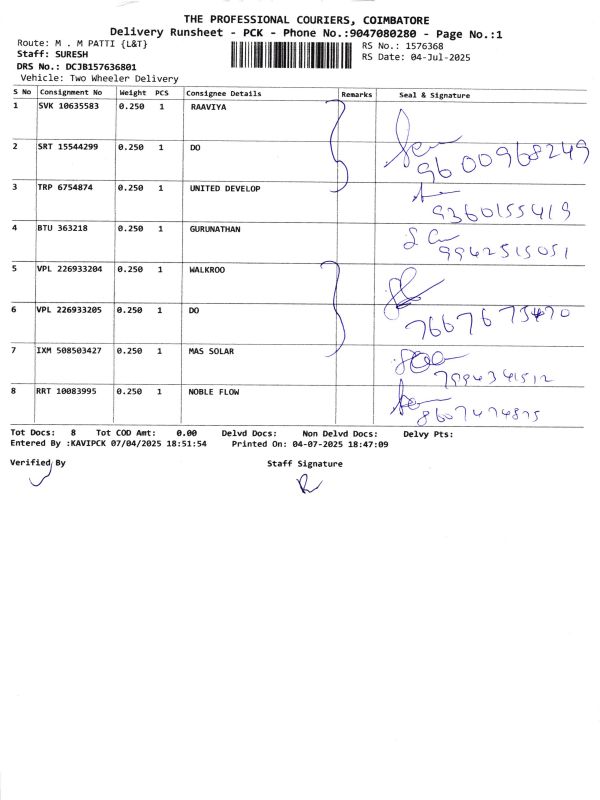 THE PROFESSIONAL COURIERS, COIMBATORE
Delivery Runsheet - PCK - Phone No.:9047080280 - Page No.:1
Route: M . M PATTI {L&T}
RS No.: 1576368
Staff: SURESH
RS Date: 04-Jul-2025
DRS No.: DCJB157636801
Vehicle: Two Wheeler Delivery
S No Consignment No Weight PCS Consignee Details Remarks Seal & Signature
1 SVK 10635583 0.250 1 RAAVIYA
2 SRT 15544299 0.250 1 DO
9600968249
3 TRP 6754874 0.250 1 UNITED DEVELOP
9360155419
4 BTU 363218 0.250 1 GURUNATHAN
9942515051
5 VPL 226933204 0.250 1 WALKROO
6 VPL 226933205 0.250 1 DO
7 IXM 508503427 0.250 1 MAS SOLAR
8 RRT 10083995 0.250 1 NOBLE FLOW
Tot Docs: 8 Tot COD Amt: 0.00 Delvd Docs: Non Delvd Docs: Delvy Pts:
Entered By :KAVIPCK 07/04/2025 18:51:54 Printed On: 04-07-2025 18:47:09
Verified By Staff Signature